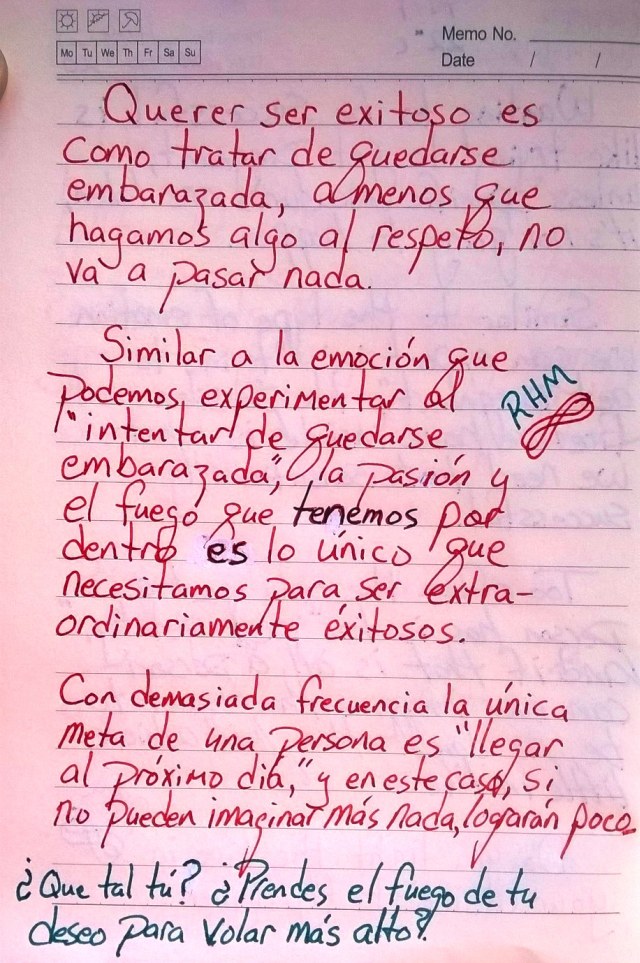 Memo No.
Mo Tu We Th Fr Sa Su
Date / /
Querer ser exitoso es
como tratar de quedarse
embarazada, a menos que
hagamos algo al respeto, no
va a pasar nada.
Similar a la emoción que
podemos experimentar al
"intentar de quedarse
embarazada," la pasión y
el fuego que tenemos por
dentro es lo único que
necesitamos para ser extra-
ordinariamente éxitosos.
RHM
Con demasiada frecuencia la única
meta de una persona es "llegar
al próximo día," y en este caso, si
no pueden imaginar más nada, lograrán poco.
¿Que tal tú? ¿Prendes el fuego de tu
deseo para volar más alto?